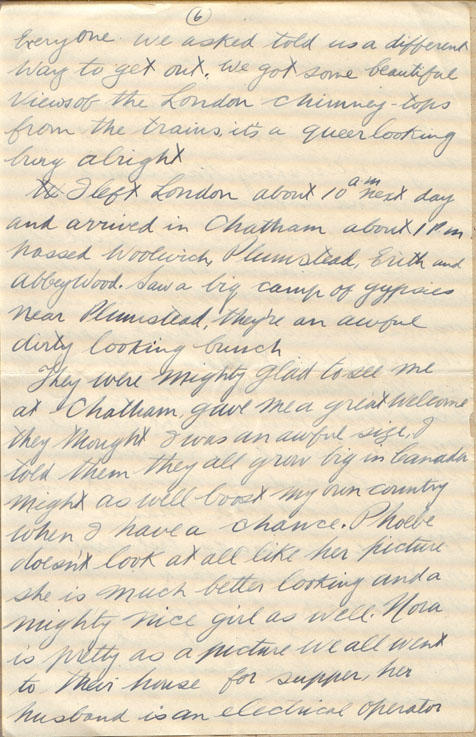 (6)
Everyone we asked told us a different
way to get out. We got some beautiful
views of the London chimney-tops
from the trains, it's a queer looking
burg alright
I left London about 10 am next day
and arrived in Chatham about 1 pm
passed Woolwich, Plumstead, Erith and
Abbey Wood. Saw a big camp of gypsies
near Plumstead, they're an awful
dirty looking bunch
They were mighty glad to see me
at Chatham, gave me a great welcome
they thought I was an awful size, I
told them they all grow big in Canada
might as well boost my own country
when I have a chance. Phoebe
doesn't look at all like her picture
she is much better looking and a
mighty nice girl as well. Nora
is pretty as a picture we all went
to their house for supper, her
husband is an electrical operator